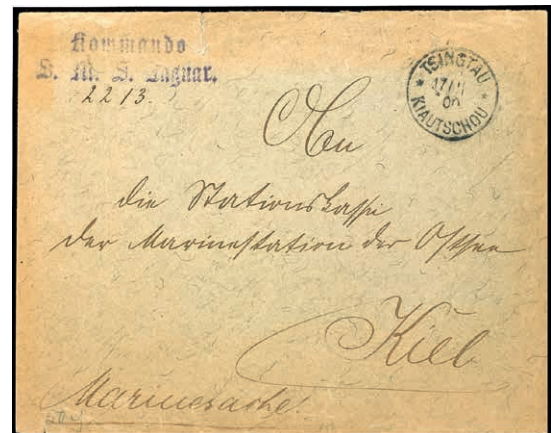 Kommando
S. M. S. Jaguar.
2213.
* TSINGTAU *
KIAUTSCHOU
An
die Stationskasse
der Marinestation der Ostsee
Kiel
Marinesache.